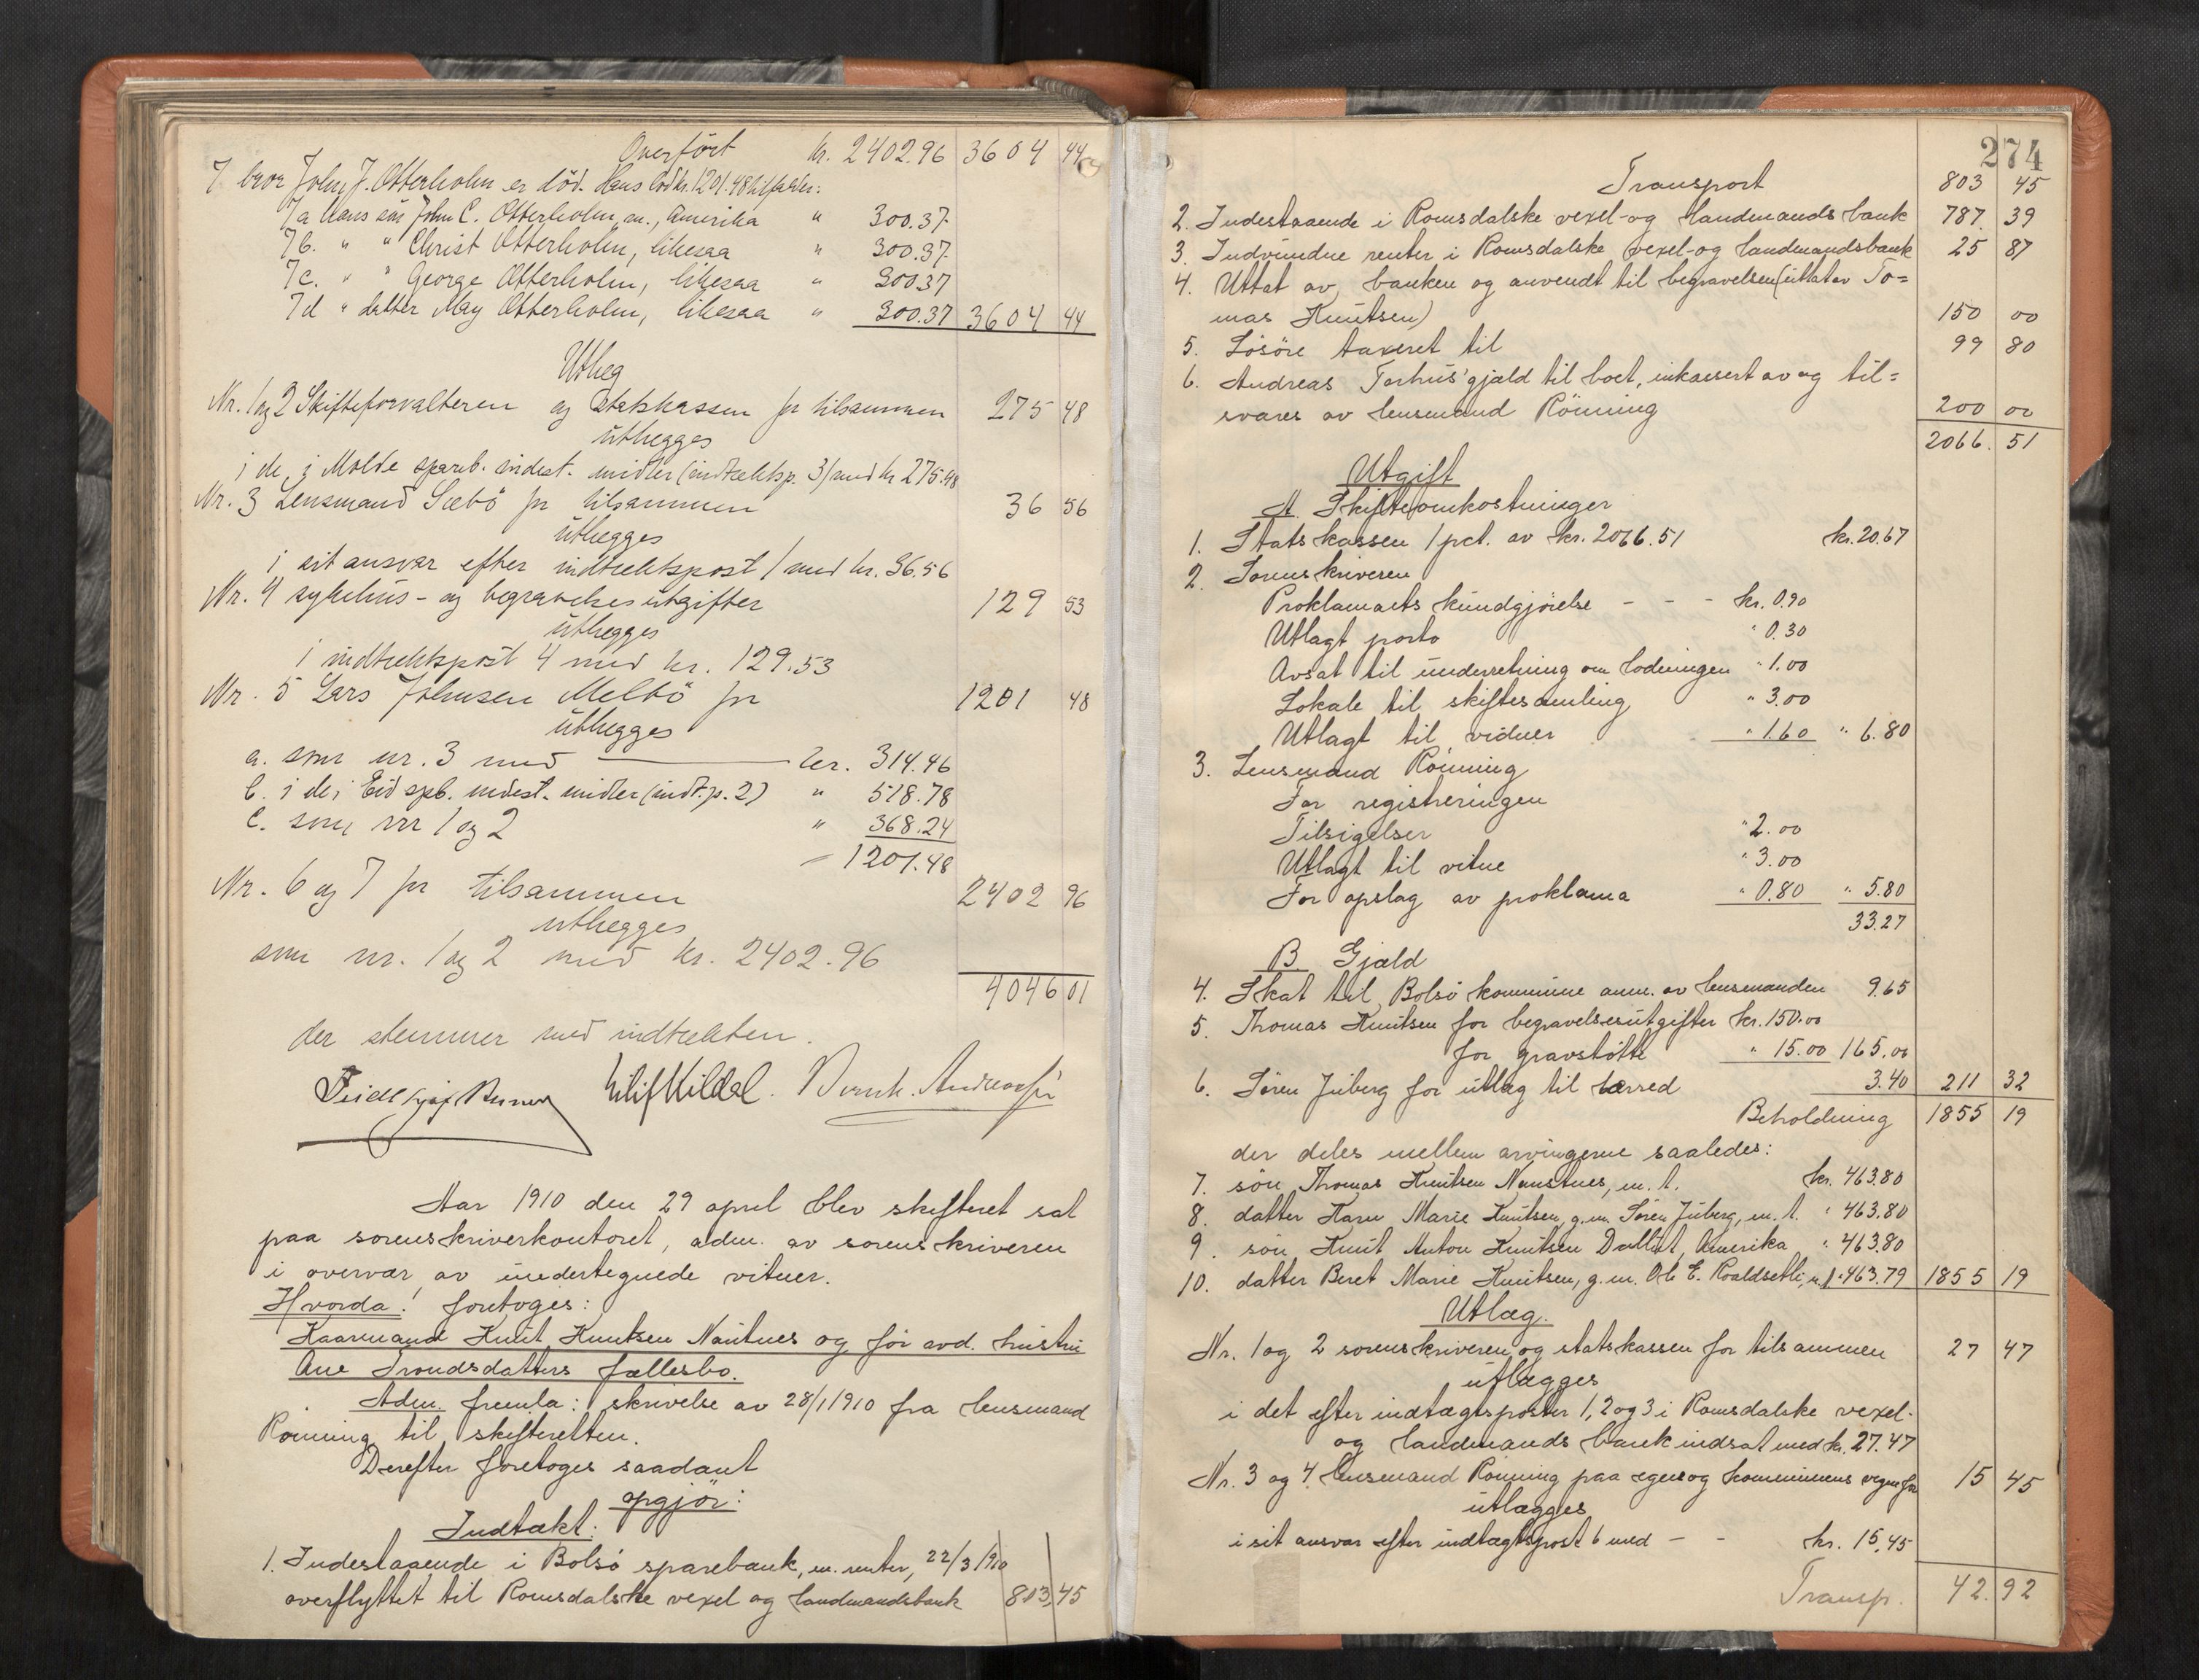 Overført kr. 2402.96 3604 44
7 bror John J. Otterholm er död. Hans lod kr. 1201.48 tilfalder:
7a hans sön John C. Otterholm, m., Amerika " 300.37
7b. " " Christ Otterholm, likesaa " 300.37
7c. " " George Otterholm, likesaa " 300.37
7d " datter May Otterholm, likesaa " 300.37 3604 44
Utlæg
Nr. 1 og 2 Skifteforvalteren og Statskassen for tilsammen 275 48
utlægges
i de i Molde spareb. indest. midler (indtæktsp. 3) med kr 275.48
Nr. 3 Lensmand Sæbö for tilsammen 36 56
utlægges
i sit ansvar efter indtæktspost 1 med kr. 36.56
Nr. 4 sykehus- og begravelsesutgifter 129 53
utlægges
i indtæktspost 4 med kr. 129.53
Nr. 5 Lars Johnsen Melbö for 1201 48
utlægges
a. som nr. 3 med kr. 314.46
b. i de i Eid spb. indest. midler (indt. p. 2) " 518.78
c. som nr 1 og 2 " 368.24
1201.48
Nr. 6 og 7 for tilsammen 2402 96
utlægges
som nr. 1 og 2 med kr. 2402.96
4046 01
der stemmer med indtækten.
Aar 1910 den 29 april blev skifteret sat
paa sorenskriverkontoret, adm. av sorenskriveren
i overvær av undertegnede vitner.
Hvorda! foretoges:
Kaarmand Knut Knutsen Nautnes og før avd. hustru
Ane Trondsdatters fællesbo.
Adm. fremla: skrivelse av 28/1 1910 fra lensmand
Rönning til skifteretten.
Derefter foretoges saadant
opgjör:
Indtækt:
1. Indestaaende i Bolsö sparebank, m. renter, 22/3 1910
overflyttet til Romsdalske vexel og landmandsbank 803 45
274
Transport 803 45
2. Indestaaende i Romsdalske vexel- og landmandsbank 787. 39
3. Indvundne renter i Romsdalske vexel- og landmandsbank 25 87
4. Uttat av banken og anvendt til begravelsen (uttat av To=
mas Knutsen) 150 00
5. Lösöre taxeret til 99 80
6. Andreas Torhus' gjæld til boet, inkassert av og til=
svares av lensmand Rönning 200 00
2066. 51
Utgift
A. Skifteomkostninger
1. Statskassen 1 pct. av kr. 2066.51 kr. 20.67
2. Sorenskriveren
Proklamaets kundgjörelse - - - kr. 0.90
Utlagt porto " 0.30
Avsat til underretning om lodningen " 1.00
Lokale til skiftesamling " 3.00
Utlagt til vidner " 1.60 " 6.80
3. Lensmand Rönning
For registreringen
Tilsigelser " 2.00
Utlagt til vitne " 3.00
For opslag av proklama " 0.80 " 5.80
33.27
B Gjæld
4. Skat til Bolsö kommune anm. av lensmanden 9.65
5. Thomas Knutsen for begravelsesutgifter kr. 150.00
for gravstötte " 15.00 165.00
6. Sören Juberg for utlæg til lærred 3.40 211 32
Beholdning 1855 19
der deles mellem arvingerne saaledes:
7. sön Thomas Knutsen Nautnes, m. t. kr. 463.80
8. datter Karn Marie Knutsen, g. m. Sören Juberg, m. t. " 463.80
9. sön Knut Anton Knutsen Amerika " 463.80
10. datter Beret Marie Knutsen, g. m. Ole E. Roaldsetli, m. t. " 463.79 1855 19
Utlæg.
Nr. 1 og 2 sorenskriveren og statskassen for tilsammen 27 47
utlægges
i det efter indtægtsposter 1, 2 og 3 i Romsdalske vexel-
og landmandsbank indsat med kr. 27.47
Nr. 3 og 4. Lensmand Rönning paa egne og kommunens vegne for 15 45
utlægges
i sit ansvar efter indtægtspost 6 med - - kr. 15,45
Transp. 42. 92